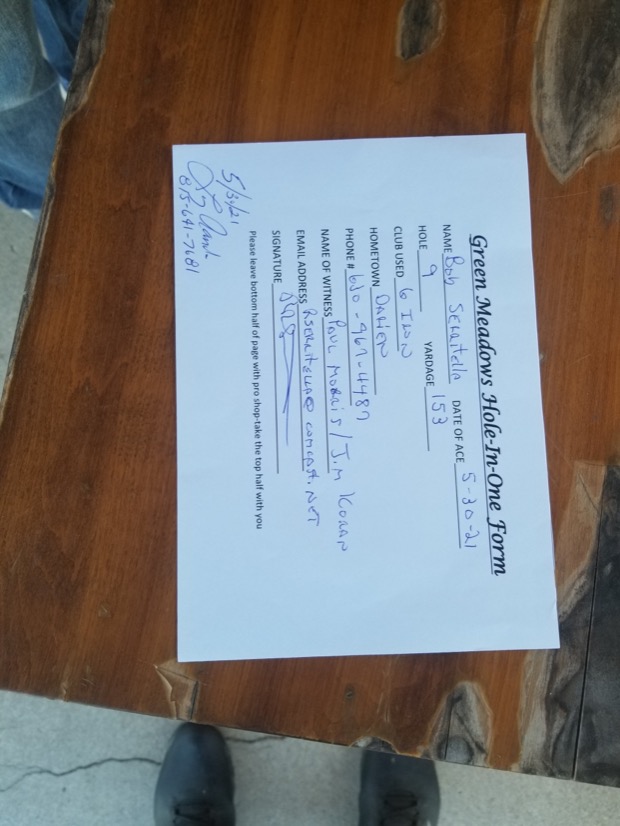 Green Meadows Hole-In-One Form
NAME Bob Serritella DATE OF ACE 5-30-21
HOLE 9 YARDAGE 153
CLUB USED 6 IRON
HOMETOWN DARIEN
PHONE # 630-967-4487
NAME OF WITNESS PAUL MORRIS / JIM
EMAIL ADDRESS
SIGNATURE
Please leave bottom half of page with pro shop-take the top half with you
5/30/21
815-641-7681